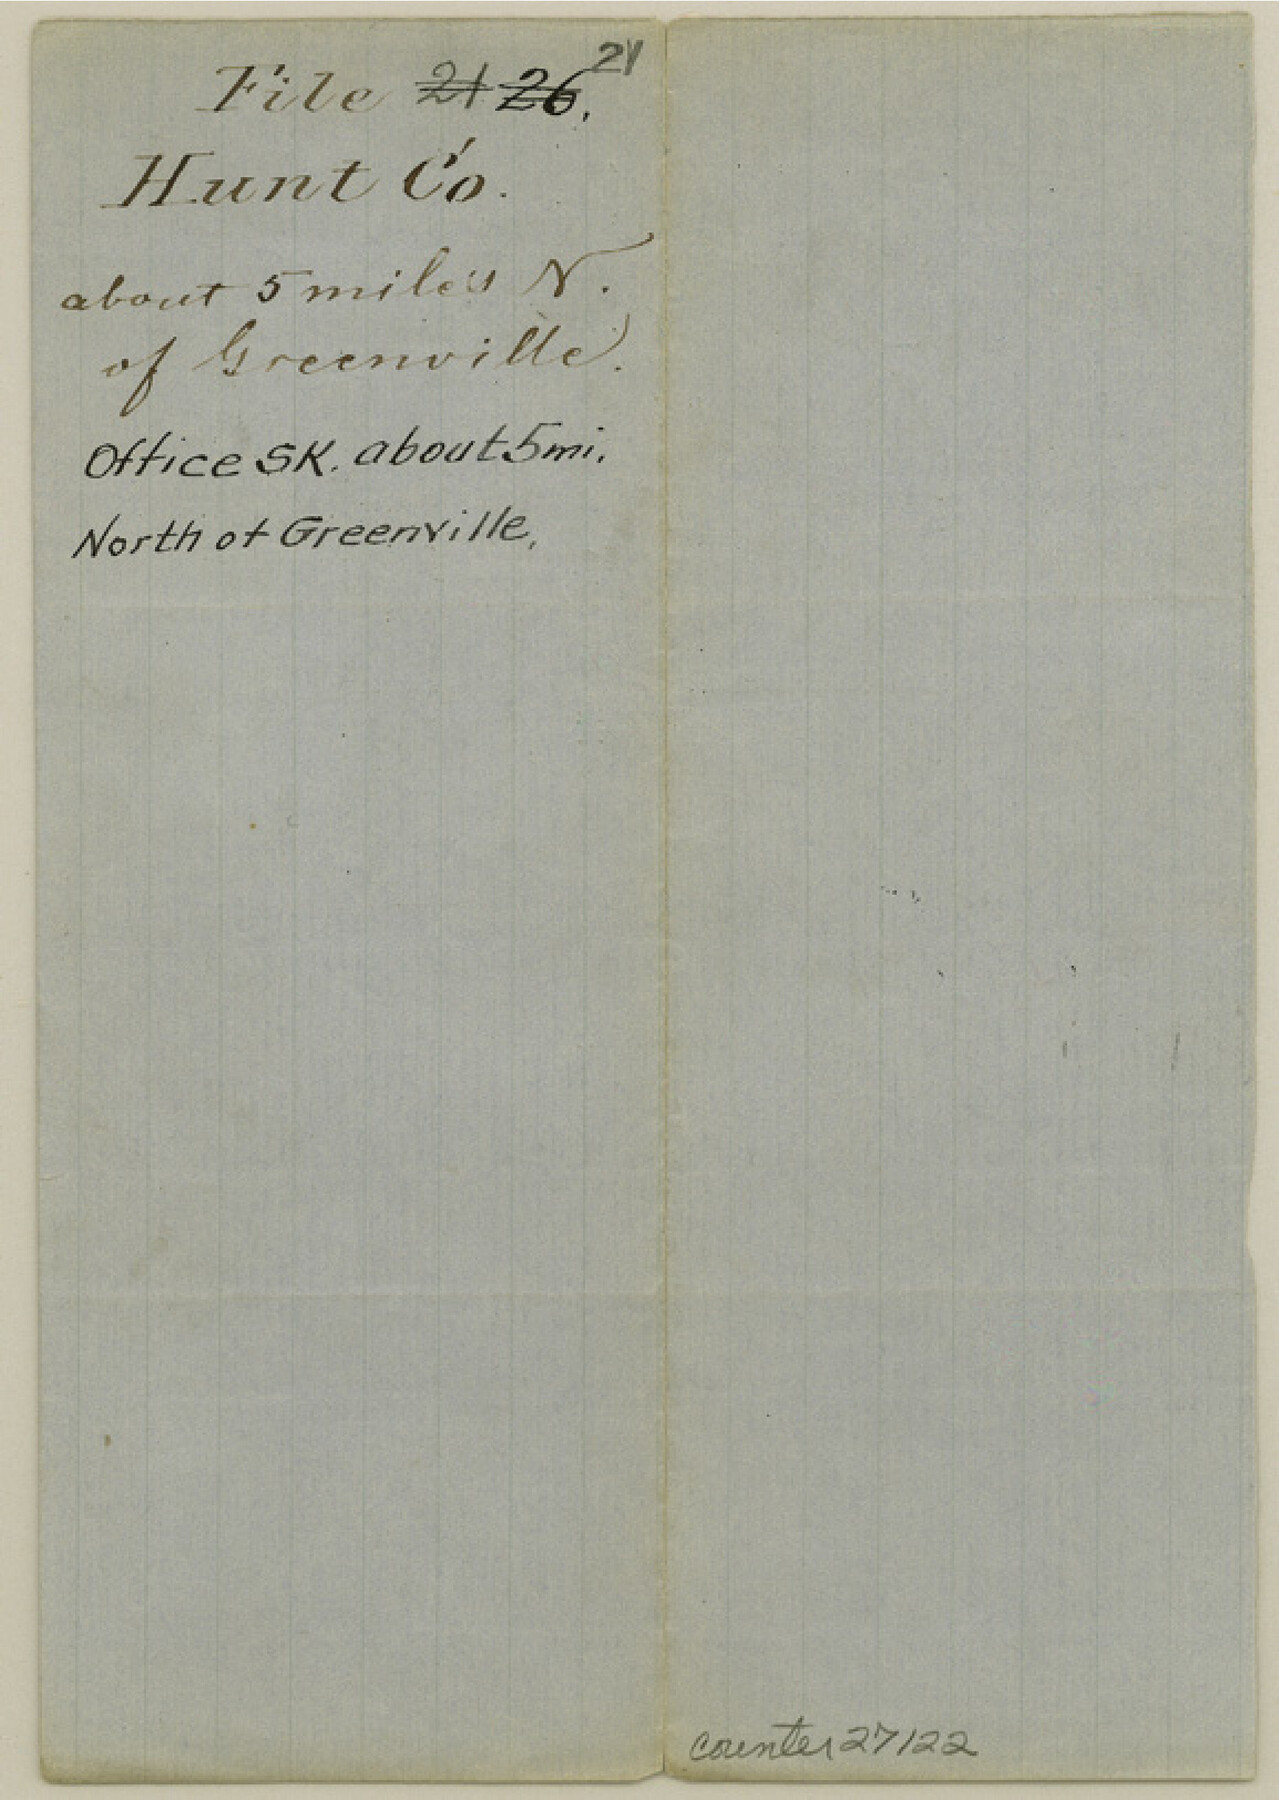 File 21 26. 21
Hunt Co.
about 5 miles N.
of Greenville.
Office SK. about 5mi.
North of Greenville.
counter 27122